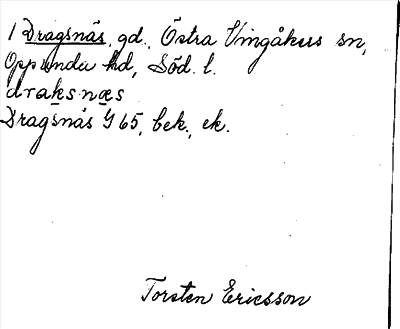 1 Dragsnäs, gd., Östra Vingåkers sn,
Oppunda hd, Söd. l.
draksnæs
Dragsnäs G 65, bek., ek.
Torsten Ericsson